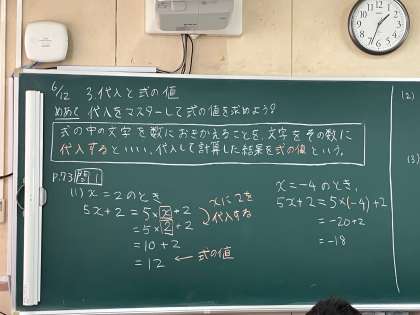 6/12 3.代入と式の値
めあて 代入をマスターして式の値を求めよう!
式の中の文字を数におきかえることを、文字をその数に
代入するといい、代入して計算した結果を式の値という。
P.73 問1
(1) x=2のとき
5x+2=5×x+2
=5×2+2
=10+2
=12 ← 式の値
xに2を
代入する
x=-4のとき、
5x+2=5×(-4)+2
=-20+2
=-18
(2)
(3)